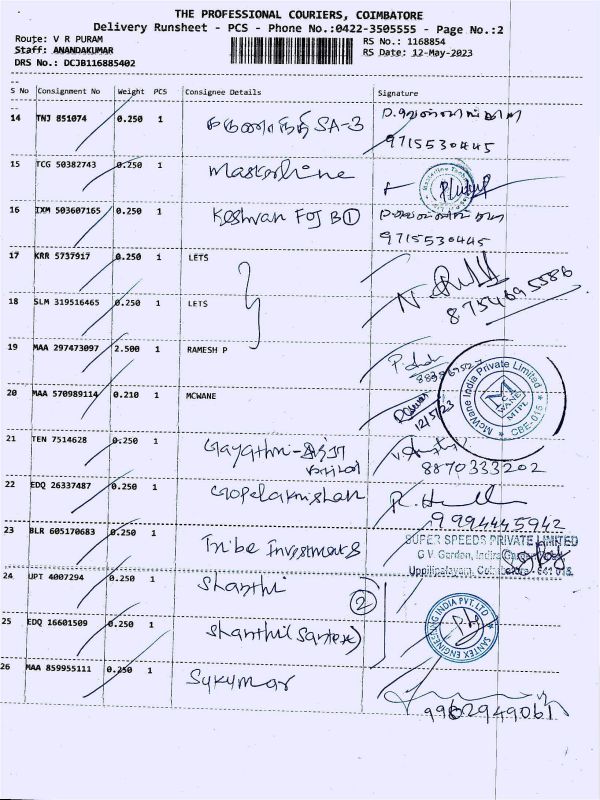 THE PROFESSIONAL COURIERS, COIMBATORE
Delivery Runsheet - PCS - Phone No.:0422-3505555 - Page No.:2
Route: V R PURAM
Staff: ANANDAKUMAR
DRS No.: DCJB116885402
RS No.: 1168854
RS Date: 12-May-2023
S No Consignment No Weight PCS Consignee Details Signature
14 TNJ 851074 0.250 1 SA-3
9715530445
15 TCG 50382743 0.250 1
16 IXM 503607165 0.250 1 Keshvan FOJ B①
9715530445
17 KRR 5737917 0.250 1 LETS
8754695586
18 SLM 319516465 0.250 1 LETS
19 MAA 297473097 2.500 1 RAMESH P
20 MAA 570989114 0.210 1 MCWANE
12/5/23
McWane India Private Limited
MTPL
CBE-015
21 TEN 7514628 0.250 1 Gayathri-
8870333202
22 EDQ 26337487 0.250 1 Gopalakrishan
9994445942
23 BLR 605170683 0.250 1 Tribe Investments
SUPER SPEEDS PRIVATE LIMITED
G V Garden, Indira
Uppilipalayam, Coimbatore - 641 015
24 UPT 4007294 0.250 1 Shanthi
②
25 EDQ 16601509 0.250 1 Shanthi (Santex)
SANTEX ENGINEERING INDIA PVT. LTD
26 MAA 859955111 0.250 1 Sukumar
9962949061